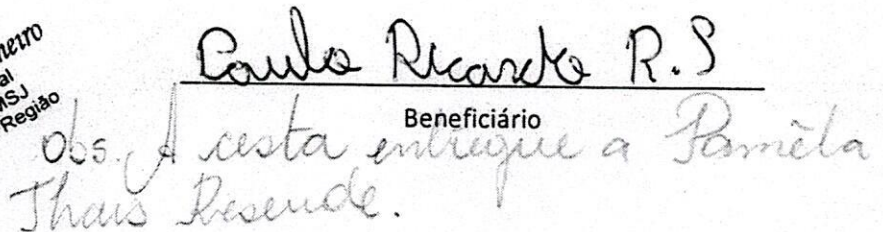 neiro
al
MSJ
Região
Paulo Ricardo R.S
Beneficiário
obs. A cesta entregue a Pamêla
Thais Resende.